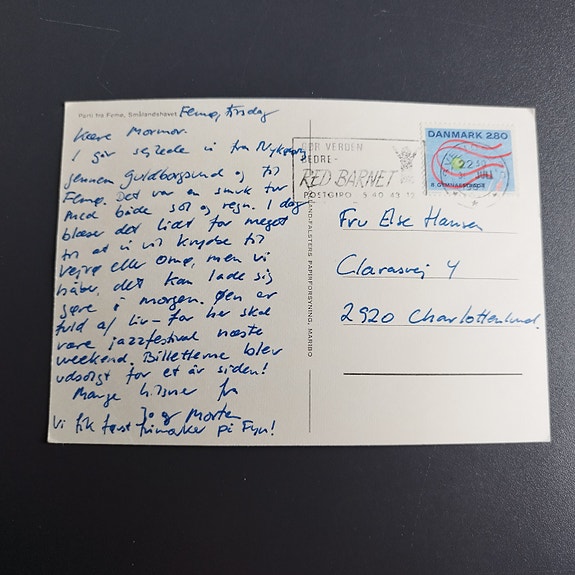 Parti fra Femø, Smålandshavet
Femø, tirsdag
Kære Mormor.
I går sejlede vi fra Nykøbing
gennem Guldborgsund og til
Femø. Det var en smuk tur
med både sol og regn. I dag
blæser det lidt for meget
til at vi vil krydse til
Vejrø eller Omø, men vi
håber, det kan lade sig
gøre i morgen. Øen er
fuld af liv – for her skal
være jazzfestival næste
weekend. Billetterne blev
udsolgt for et år siden!
Mange hilsner fra
Jo og Morten
Vi fik først frimærker på Fyn!
LOLLAND-FALSTERS PAPIRFORSYNING, MARIBO
GØR VERDEN
BEDRE-
RED BARNET
POSTGIRO 5 40 43 12
DANMARK 2.80
22.
JULI
Fru Else Hansen
Clarasvej 4
2920 Charlottenlund.